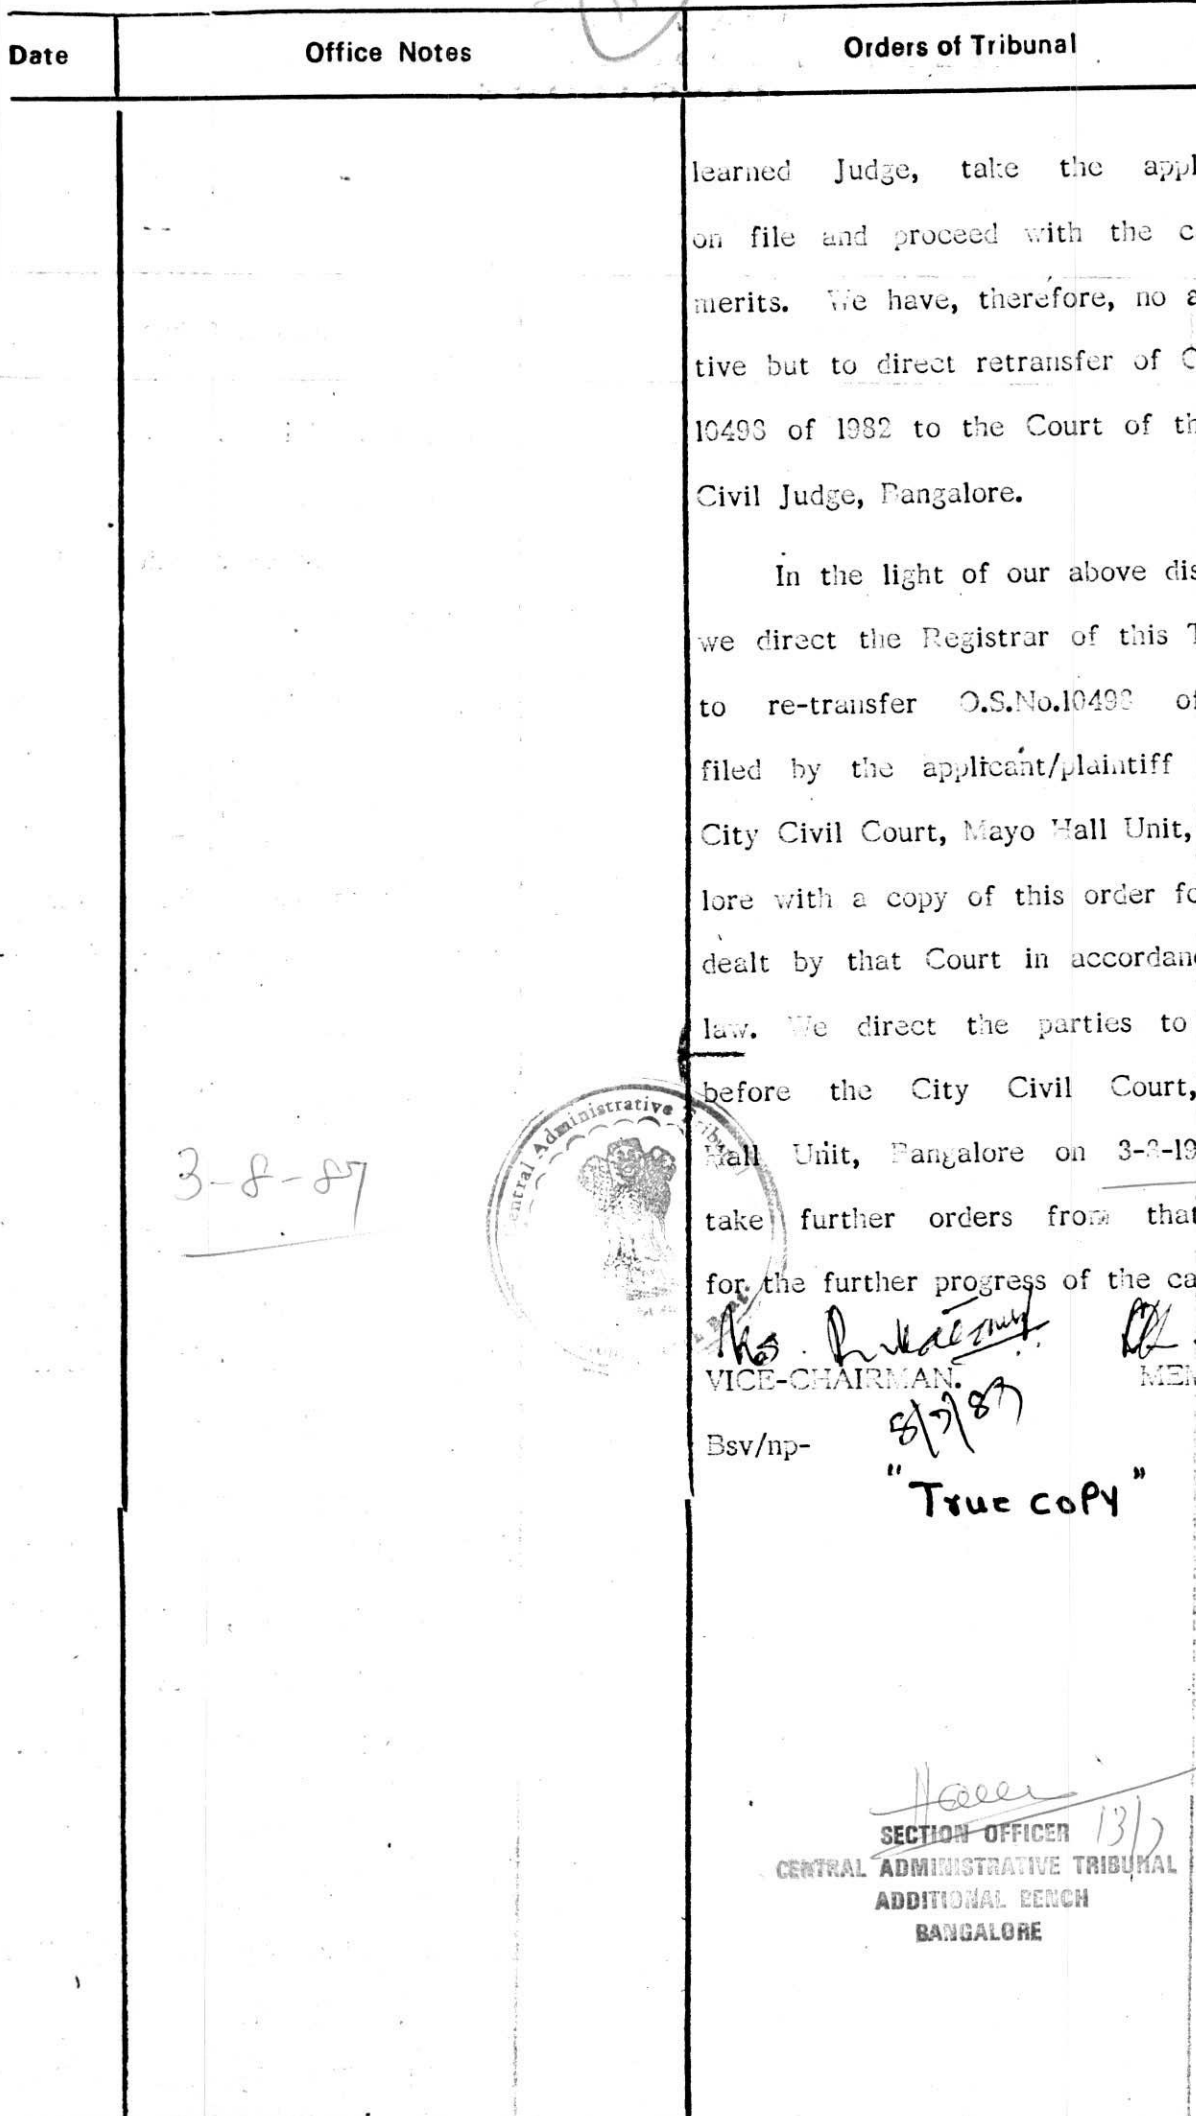 Date
Office Notes
Orders of Tribunal
learned Judge, take the appl
on file and proceed with the c
merits. We have, therefore, no a
tive but to direct retransfer of O
10498 of 1982 to the Court of th
Civil Judge, Bangalore.
In the light of our above dis
we direct the Registrar of this T
to re-transfer O.S.No.10498 of
filed by the applicant/plaintiff
City Civil Court, Mayo Hall Unit,
lore with a copy of this order fo
dealt by that Court in accordanc
law. We direct the parties to
before the City Civil Court,
Hall Unit, Bangalore on 3-8-19
take further orders from that
for the further progress of the ca
3-8-87
Central Administrative Tribunal
VICE-CHAIRMAN.
MEM
8/7/87
Bsv/np-
"True copy"
13/7
SECTION OFFICER
CENTRAL ADMINISTRATIVE TRIBUNAL
ADDITIONAL BENCH
BANGALORE